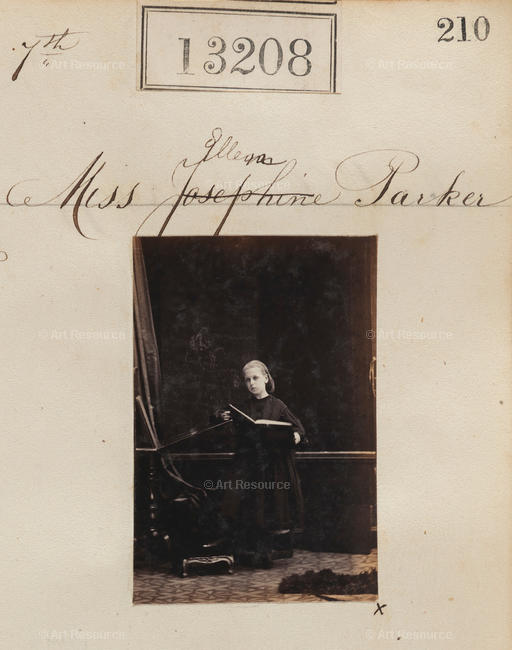 7th
13208
210
Ellen
Miss Josephine Parker
x
©Art Resource
©Art Resource
©Art Resource
©Art Resource
©Art Resource
©Art Resource
©Art Resource
©Art Resource
©Art Resource